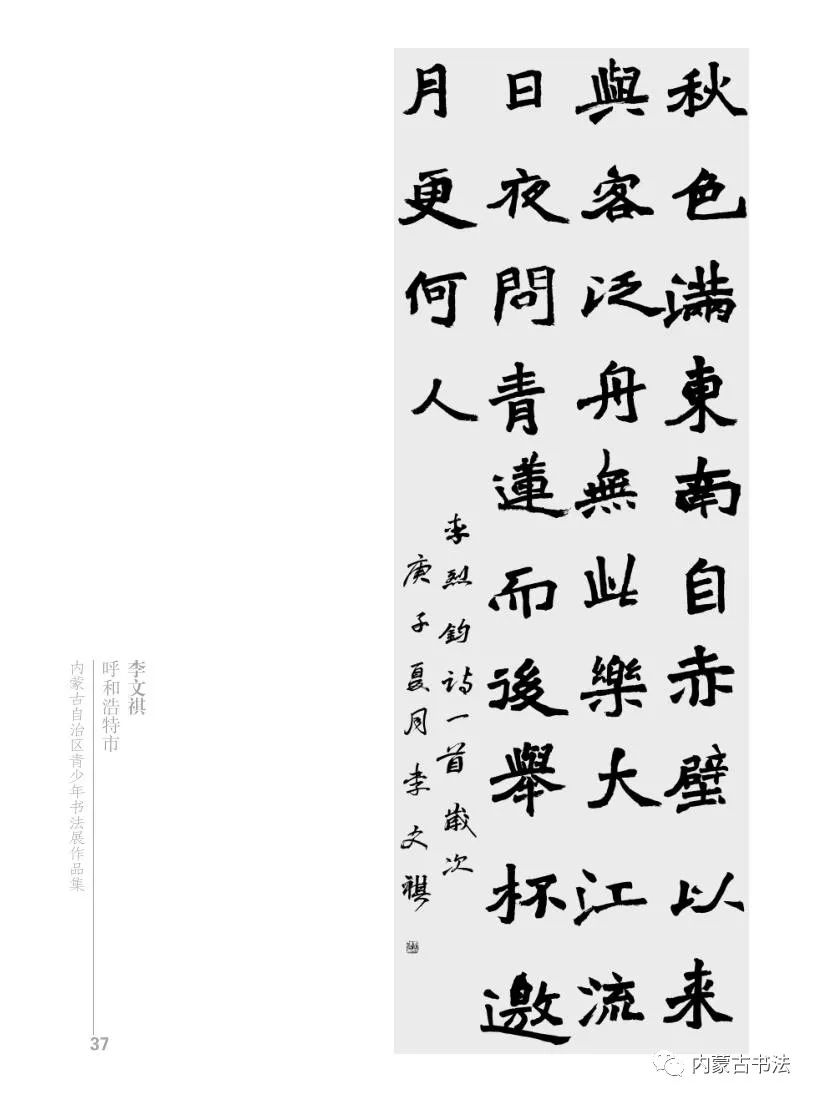 秋色滿東南自赤壁以来
與客泛舟無此樂大江流
日夜問青蓮而後舉杯邀
月更何人
李烈鈞诗一首歲次
庚子夏月李文祺
李文祺
呼和浩特市
内蒙古自治区青少年书法展作品集
37
内蒙古书法